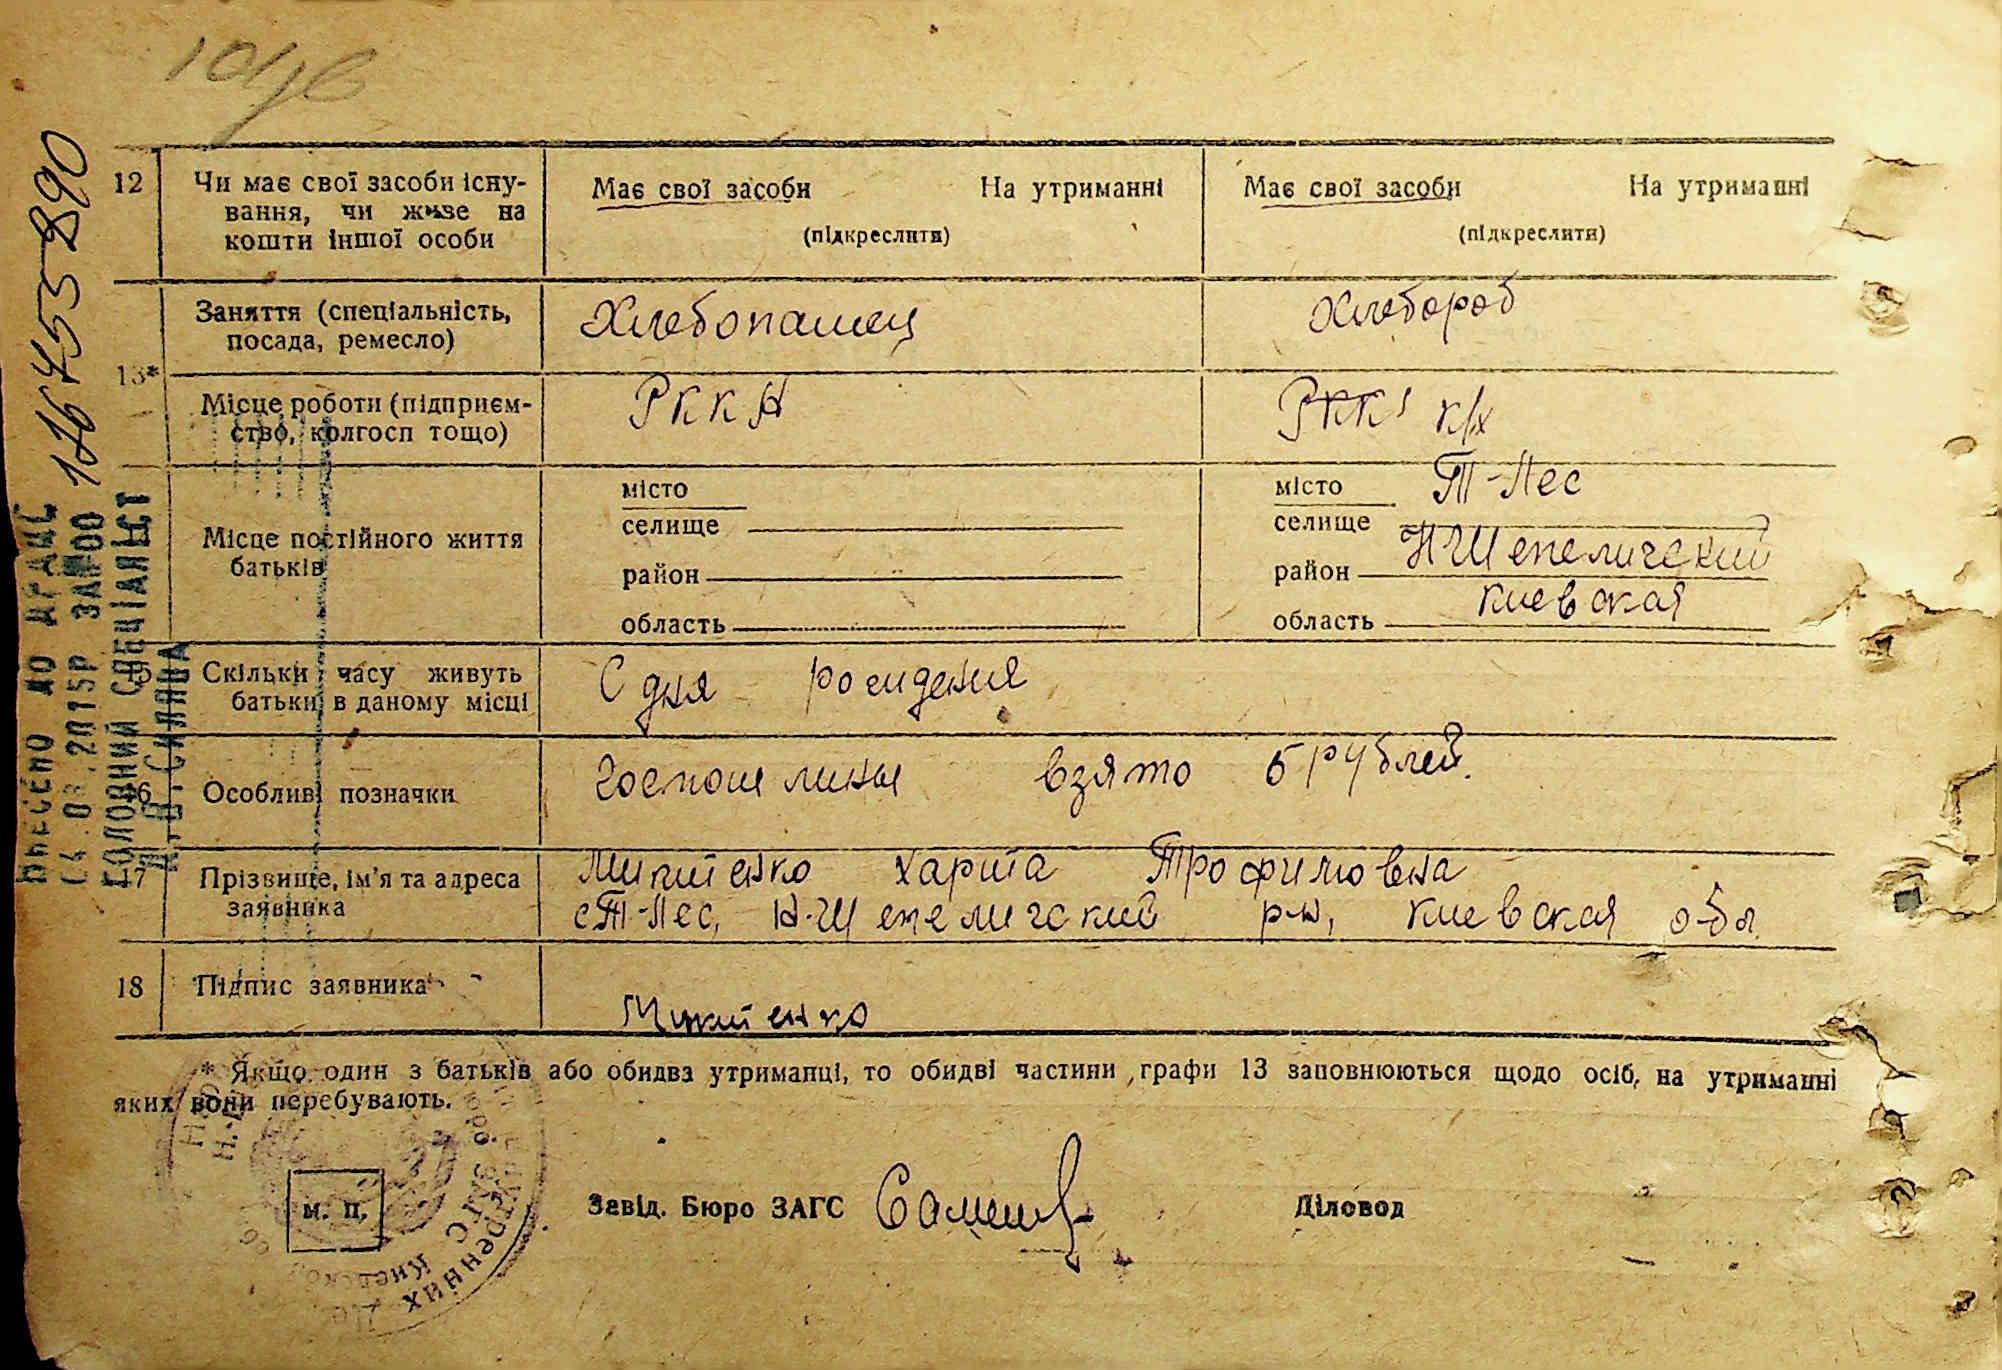 116455890
12
Чи має свої засоби існу-
вання, чи живе на
кошти іншої особи
Має свої засоби На утриманні
(підкреслити)
Має свої засоби На утриманні
(підкреслити)
13*
Заняття (спеціальність,
посада, ремесло)
Хлебопашец
Хлебороб
Місце роботи (підприєм-
ство, колгосп тощо)
РККА
РКК к/х
Місце постійного життя
батьків
місто
селище
район
область
місто Т-Лес
селище
район Н-Шепеличский
область Киевская
15
Скільки часу живуть
батьки в даному місці
С дня рождения
16
Особливі позначки
Госпошлины взято 5 рублей.
17
Прізвище, ім'я та адреса
заявника
Микитенко Харита Трофимовна
с. Т-Лес, Н-Шепеличский р-н, Киевская обл
18
Підпис заявника
Микитенко
* Якщо один з батьків або обидва утриманці, то обидві частини графи 13 заповнюються щодо осіб, на утриманні
яких вони перебувають.
м. п.
Завід. Бюро ЗАГС
Діловод
Внесено до ДРАЦС
2015р
ГОЛОВНИЙ СПЕЦІАЛІСТ
ЗАГС
Киевской